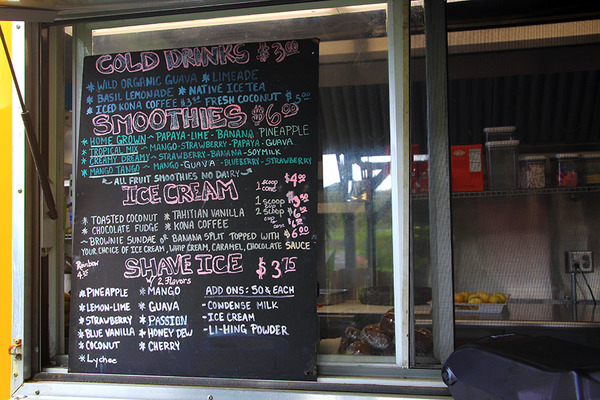 COLD DRINKS $3.00
* WILD ORGANIC GUAVA * LIMEADE
* BASIL LEMONADE * NATIVE ICE TEA
* ICED KONA COFFEE $3.50 FRESH COCONUT $5.00
SMOOTHIES $6.00
* HOME GROWN ~ PAPAYA-LIME-BANANA PINEAPPLE
* TROPICAL MIX ~ MANGO-STRAWBERRY-PAPAYA-GUAVA
* CREAMY DREAMY ~ STRAWBERRY-BANANA-SOYMILK
* MANGO TANGO ~ MANGO-GUAVA-BLUEBERRY-STRAWBERRY
ALL FRUIT SMOOTHIES NO DAIRY
ICE CREAM
1 SCOOP CONE $4.50
1 SCOOP CUP
2 SCOOP
* TOASTED COCONUT * TAHITIAN VANILLA
* CHOCOLATE FUDGE * KONA COFFEE
~ BROWNIE SUNDAE or BANANA SPLIT TOPPED WITH $6.00
YOUR CHOICE OF ICE CREAM, WHIP CREAM, CARAMEL, CHOCOLATE SAUCE
SHAVE ICE $3.75
w/ 2 flavors
Rainbow
* PINEAPPLE * MANGO ADD ONS: 50¢ EACH
* LEMON-LIME * GUAVA - CONDENSE MILK
* STRAWBERRY * PASSION - ICE CREAM
* BLUE VANILLA * HONEY DEW - LI-HING POWDER
* COCONUT * CHERRY
* Lychee